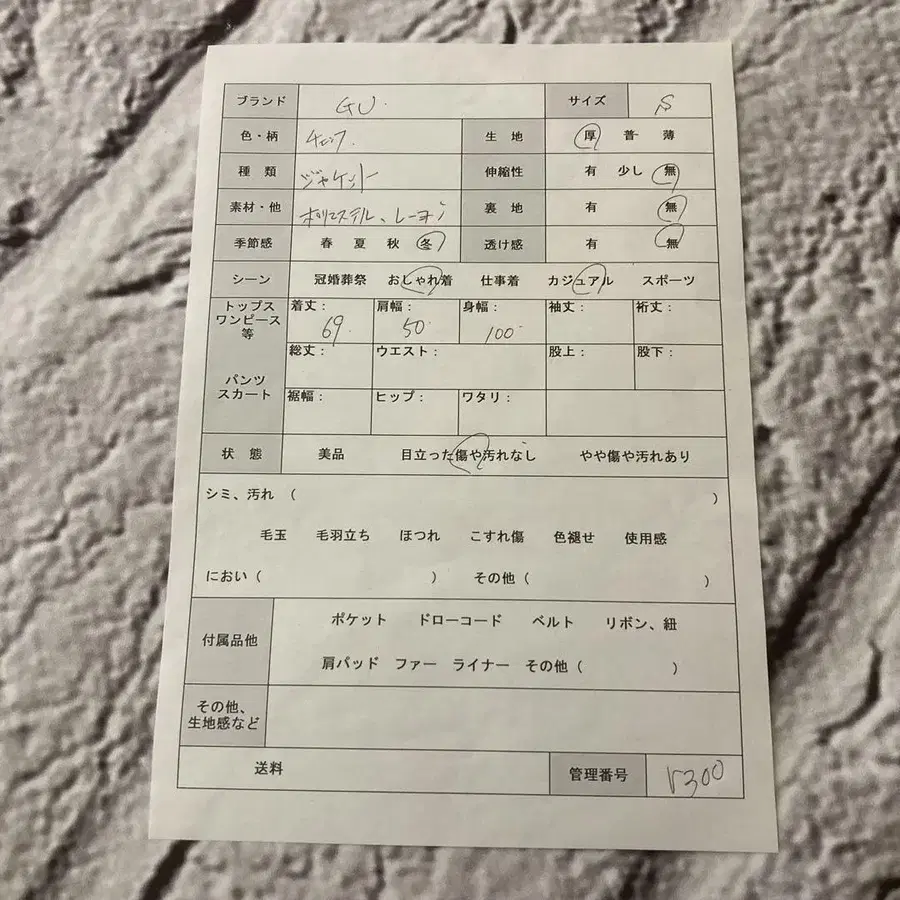 ブランド GU. サイズ S
色・柄 チェック. 生地 厚 普 薄
種類 ジャケット 伸縮性 有 少し 無
素材・他 ポリエステル、レーヨン 裏地 有 無
季節感 春 夏 秋 冬 透け感 有 無
シーン 冠婚葬祭 おしゃれ着 仕事着 カジュアル スポーツ
トップス
ワンピース
等
着丈： 69. 肩幅： 50 身幅： 100 袖丈： 裄丈：
パンツ
スカート
総丈： ウエスト： 股上： 股下：
裾幅： ヒップ： ワタリ：
状態 美品 目立った傷や汚れなし やや傷や汚れあり
シミ、汚れ （ ）
毛玉 毛羽立ち ほつれ こすれ傷 色褪せ 使用感
におい（ ） その他（ ）
付属品他 ポケット ドローコード ベルト リボン、紐
肩パッド ファー ライナー その他（ ）
その他、
生地感など
送料 管理番号